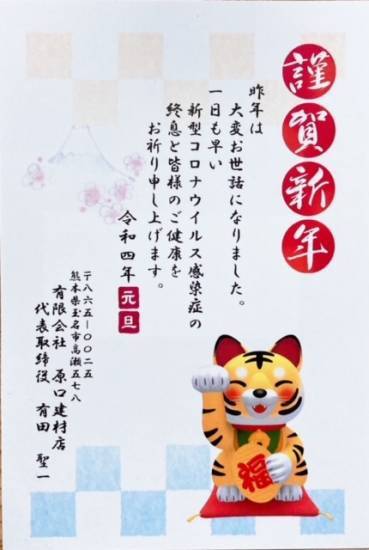 謹賀新年
昨年は
大変お世話になりました。
一日も早い
新型コロナウイルス感染症の
終息と皆様のご健康を
お祈り申し上げます。
令和四年 元旦
〒八六五－〇〇二五
熊本県玉名市高瀬五七八
有限会社 原口建材店
代表取締役 有田 聖一
福